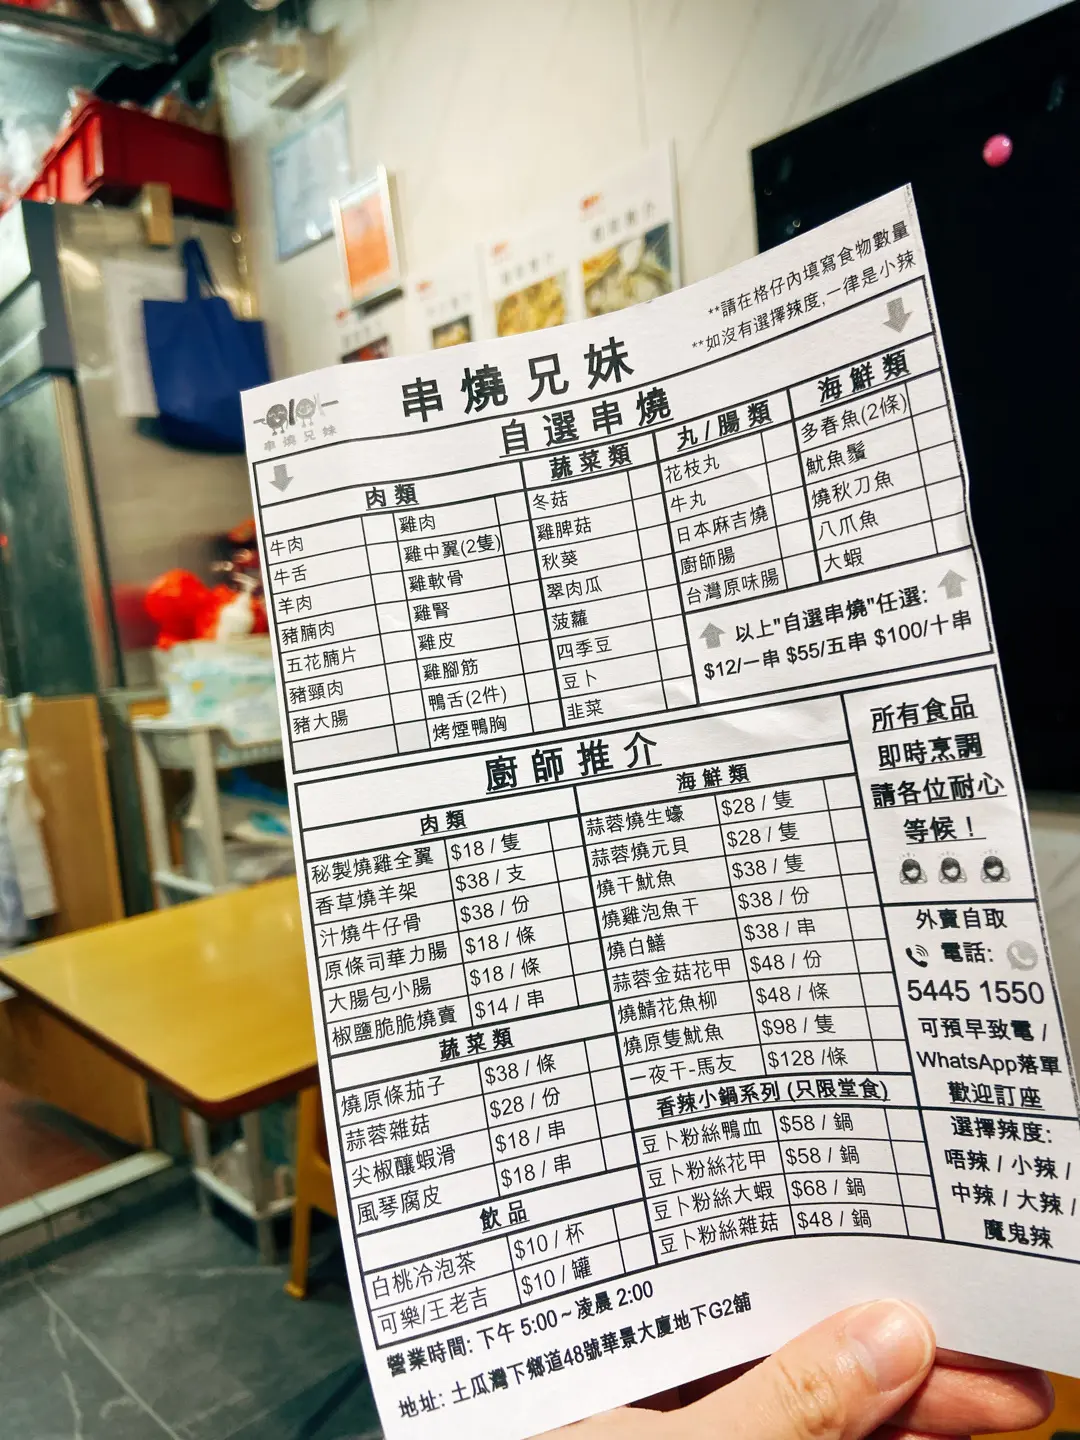 **請在格仔內填寫食物數量
**如沒有選擇辣度,一律是小辣
串燒兄妹
串燒兄妹
自選串燒
肉類
牛肉
牛舌
羊肉
豬腩肉
五花腩片
豬頸肉
豬大腸
雞肉
雞中翼(2隻)
雞軟骨
雞腎
雞皮
雞腳筋
鴨舌(2件)
烤煙鴨胸
蔬菜類
冬菇
雞脾菇
秋葵
翠肉瓜
菠蘿
四季豆
豆卜
韭菜
丸/腸類
花枝丸
牛丸
日本麻吉燒
廚師腸
台灣原味腸
海鮮類
多春魚(2條)
魷魚鬚
燒秋刀魚
八爪魚
大蝦
以上"自選串燒"任選:
$12/一串 $55/五串 $100/十串
廚師推介
肉類
秘製燒雞全翼 $18 / 隻
香草燒羊架 $38 / 支
汁燒牛仔骨 $38 / 份
原條司華力腸 $18 / 條
大腸包小腸 $18 / 條
椒鹽脆脆燒賣 $14 / 串
蔬菜類
燒原條茄子 $38 / 條
蒜蓉雜菇 $28 / 份
尖椒釀蝦滑 $18 / 串
風琴腐皮 $18 / 串
飲品
白桃冷泡茶 $10 / 杯
可樂/王老吉 $10 / 罐
海鮮類
蒜蓉燒生蠔 $28 / 隻
蒜蓉燒元貝 $28 / 隻
燒干魷魚 $38 / 隻
燒雞泡魚干 $38 / 份
燒白鱔 $38 / 串
蒜蓉金菇花甲 $48 / 份
燒鯖花魚柳 $48 / 條
燒原隻魷魚 $98 / 隻
一夜干-馬友 $128 /條
香辣小鍋系列 (只限堂食)
豆卜粉絲鴨血 $58 / 鍋
豆卜粉絲花甲 $58 / 鍋
豆卜粉絲大蝦 $68 / 鍋
豆卜粉絲雜菇 $48 / 鍋
所有食品
即時烹調
請各位耐心
等候！
外賣自取
電話:
5445 1550
可預早致電 /
WhatsApp落單
歡迎訂座
選擇辣度:
唔辣 / 小辣 /
中辣 / 大辣 /
魔鬼辣
營業時間: 下午 5:00 ~ 凌晨 2:00
地址: 土瓜灣下鄉道48號華景大廈地下G2舖